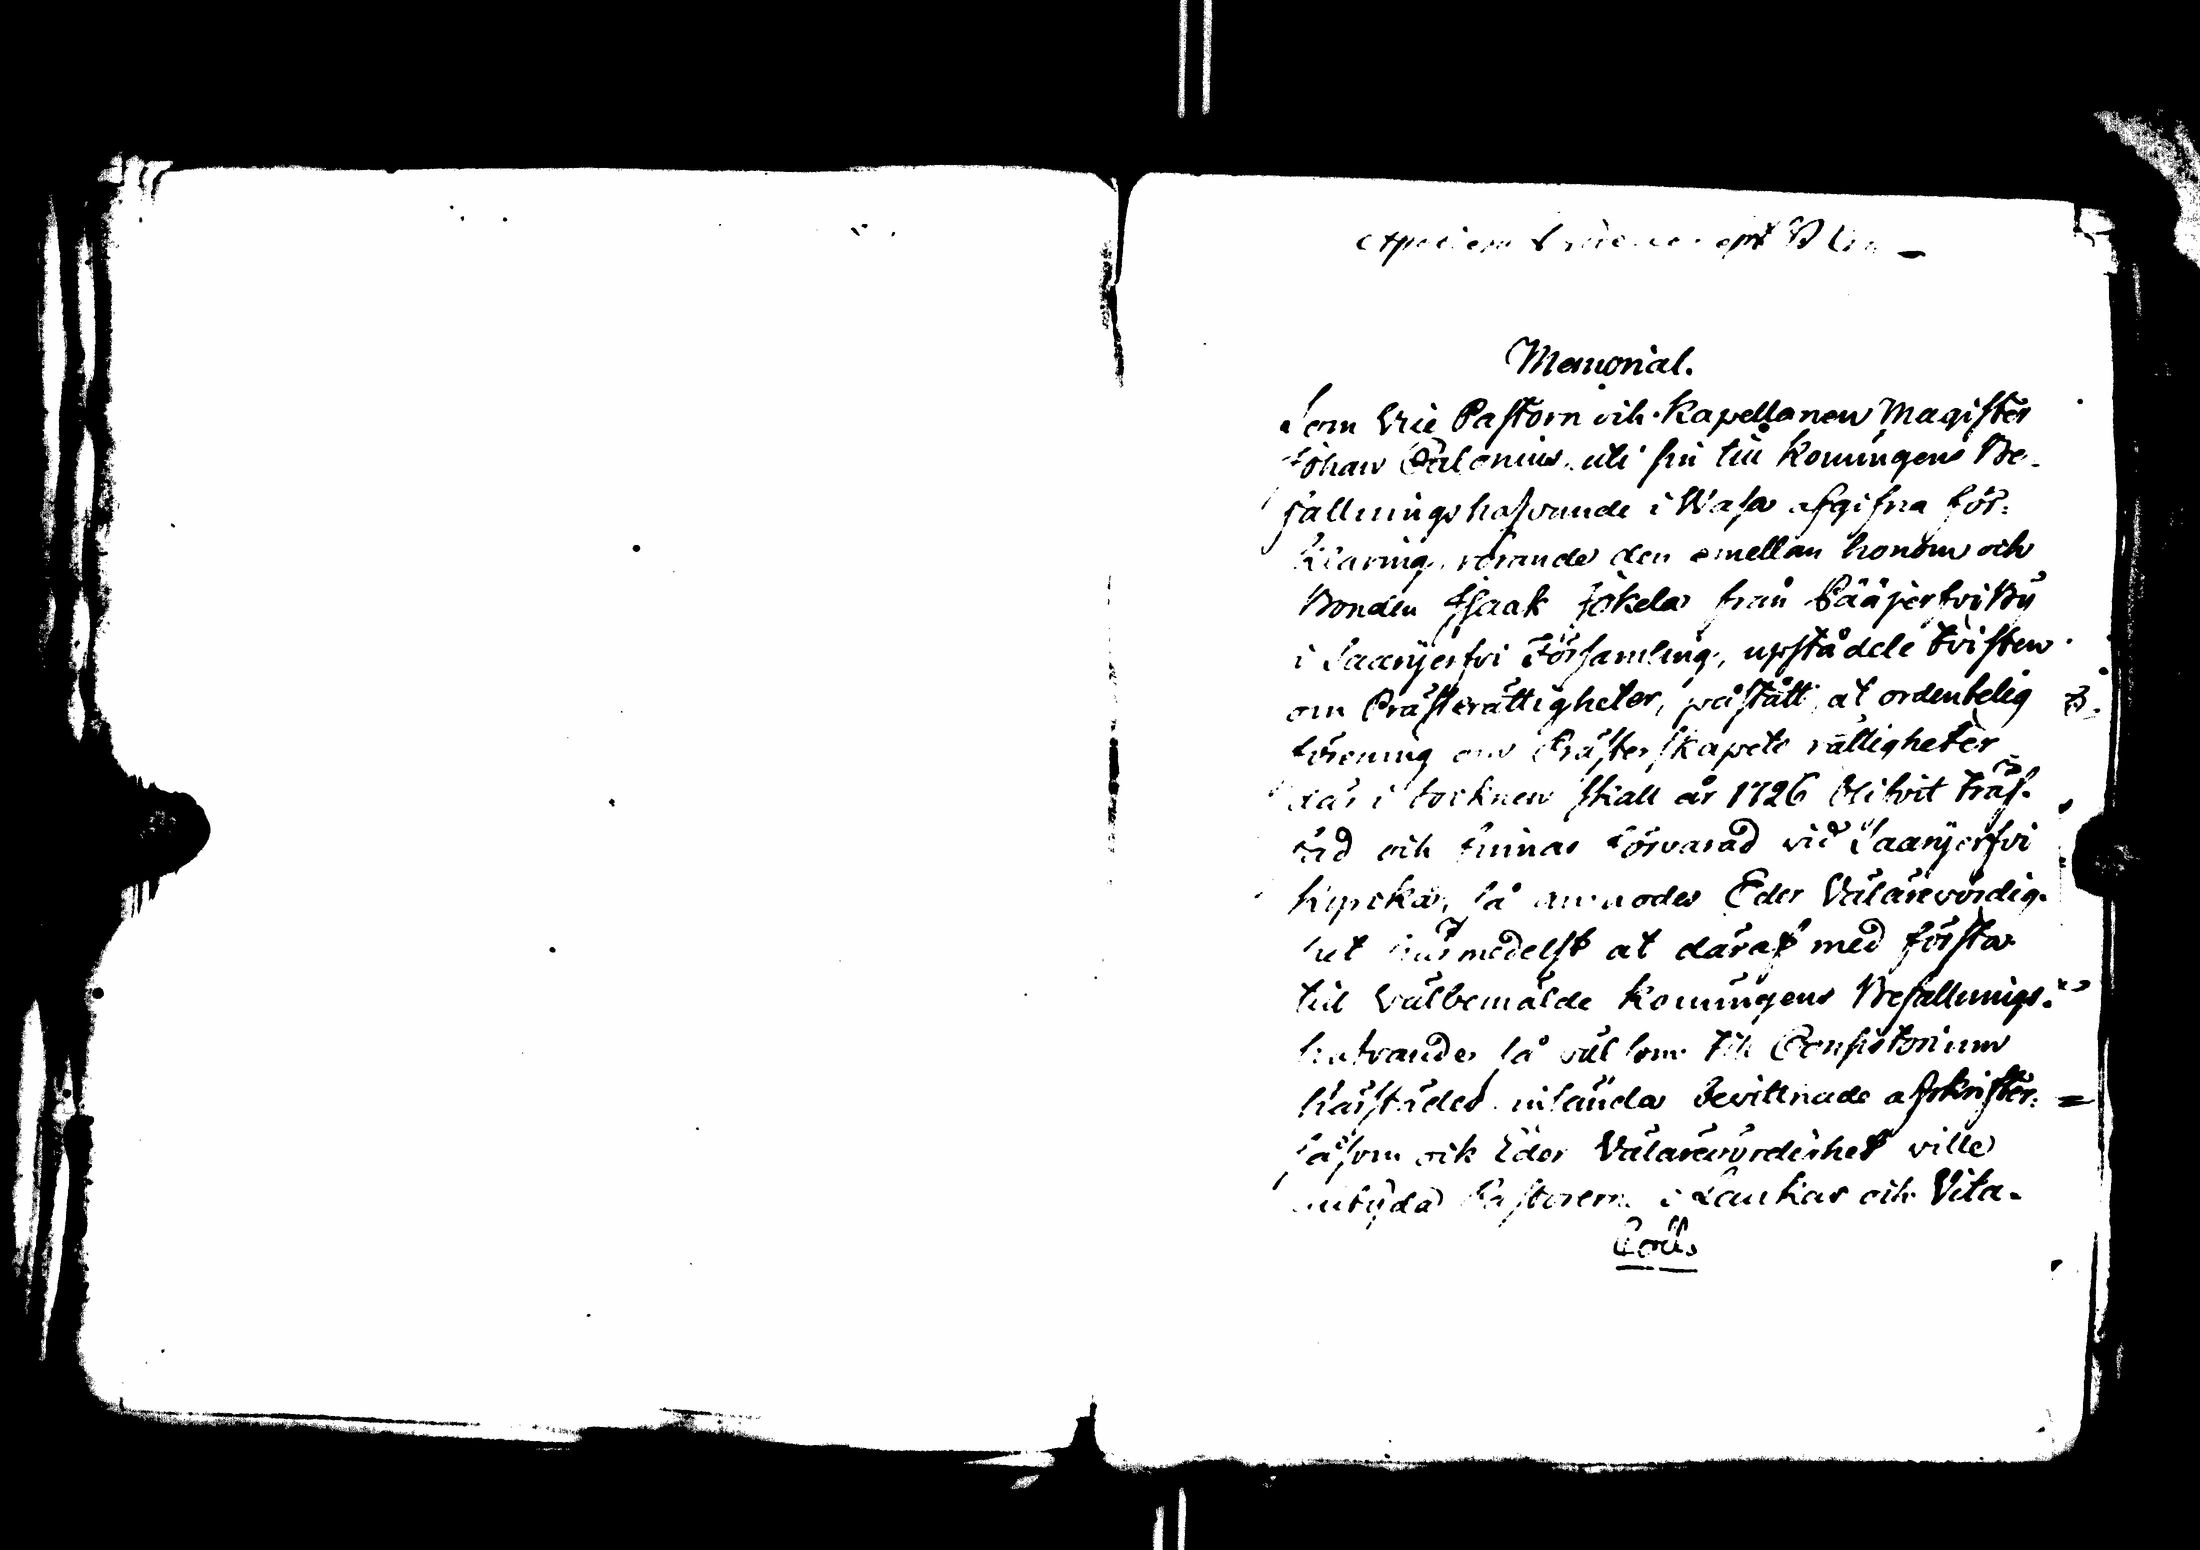 Memorial.
Som Vice Pastorn och Kapellanen Magister
Johan Calonius uti sin till Konungens Be-
fallningshafvande i Wasa afgifna för-
klaring, rörande den emellan honom och
Bonden Isaak Jokela från Pääjerfvi By
i Saarijerfvi Församling, upstådde tvisten
om Prästerättigheter, påstått, at ordentelig
förening om Prästerskapets rättigheter
där i socknen skall år 1726 blifvit träf-
fad och finnas förvarad vid Saarijerfvi
kyrcka, så anmodes Eder Välärevördig-
het härmedelst at däraf med första
till Välbemälde Konungens Befallnings-
hafvande så väl som till Consistorium
härstädes insända bevittnade afskrifter
såsom ock Eder Välärevördighet ville
antyda Pastorerne i Laukas och Vita-